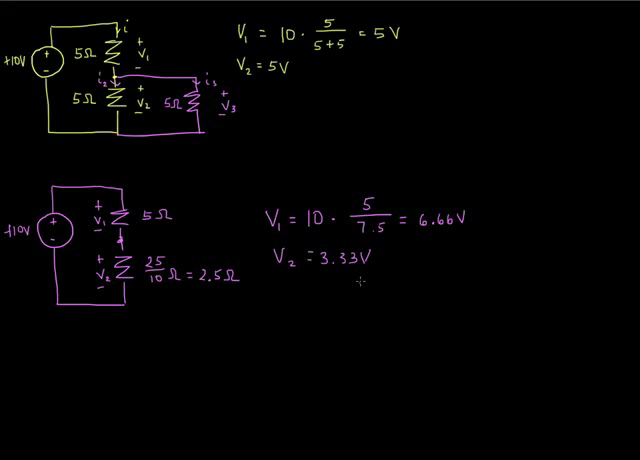 i
+10V
5Ω
+
V₁
-
i₂
i₃
5Ω
+
V₂
-
5Ω
+
V₃
-
V₁ = 10 · 5/(5+5) = 5V
V₂ = 5V
+10V
+
V₁
-
5Ω
+
V₂
-
25/10 Ω = 2.5Ω
V₁ = 10 · 5/7.5 = 6.66V
V₂ = 3.33V